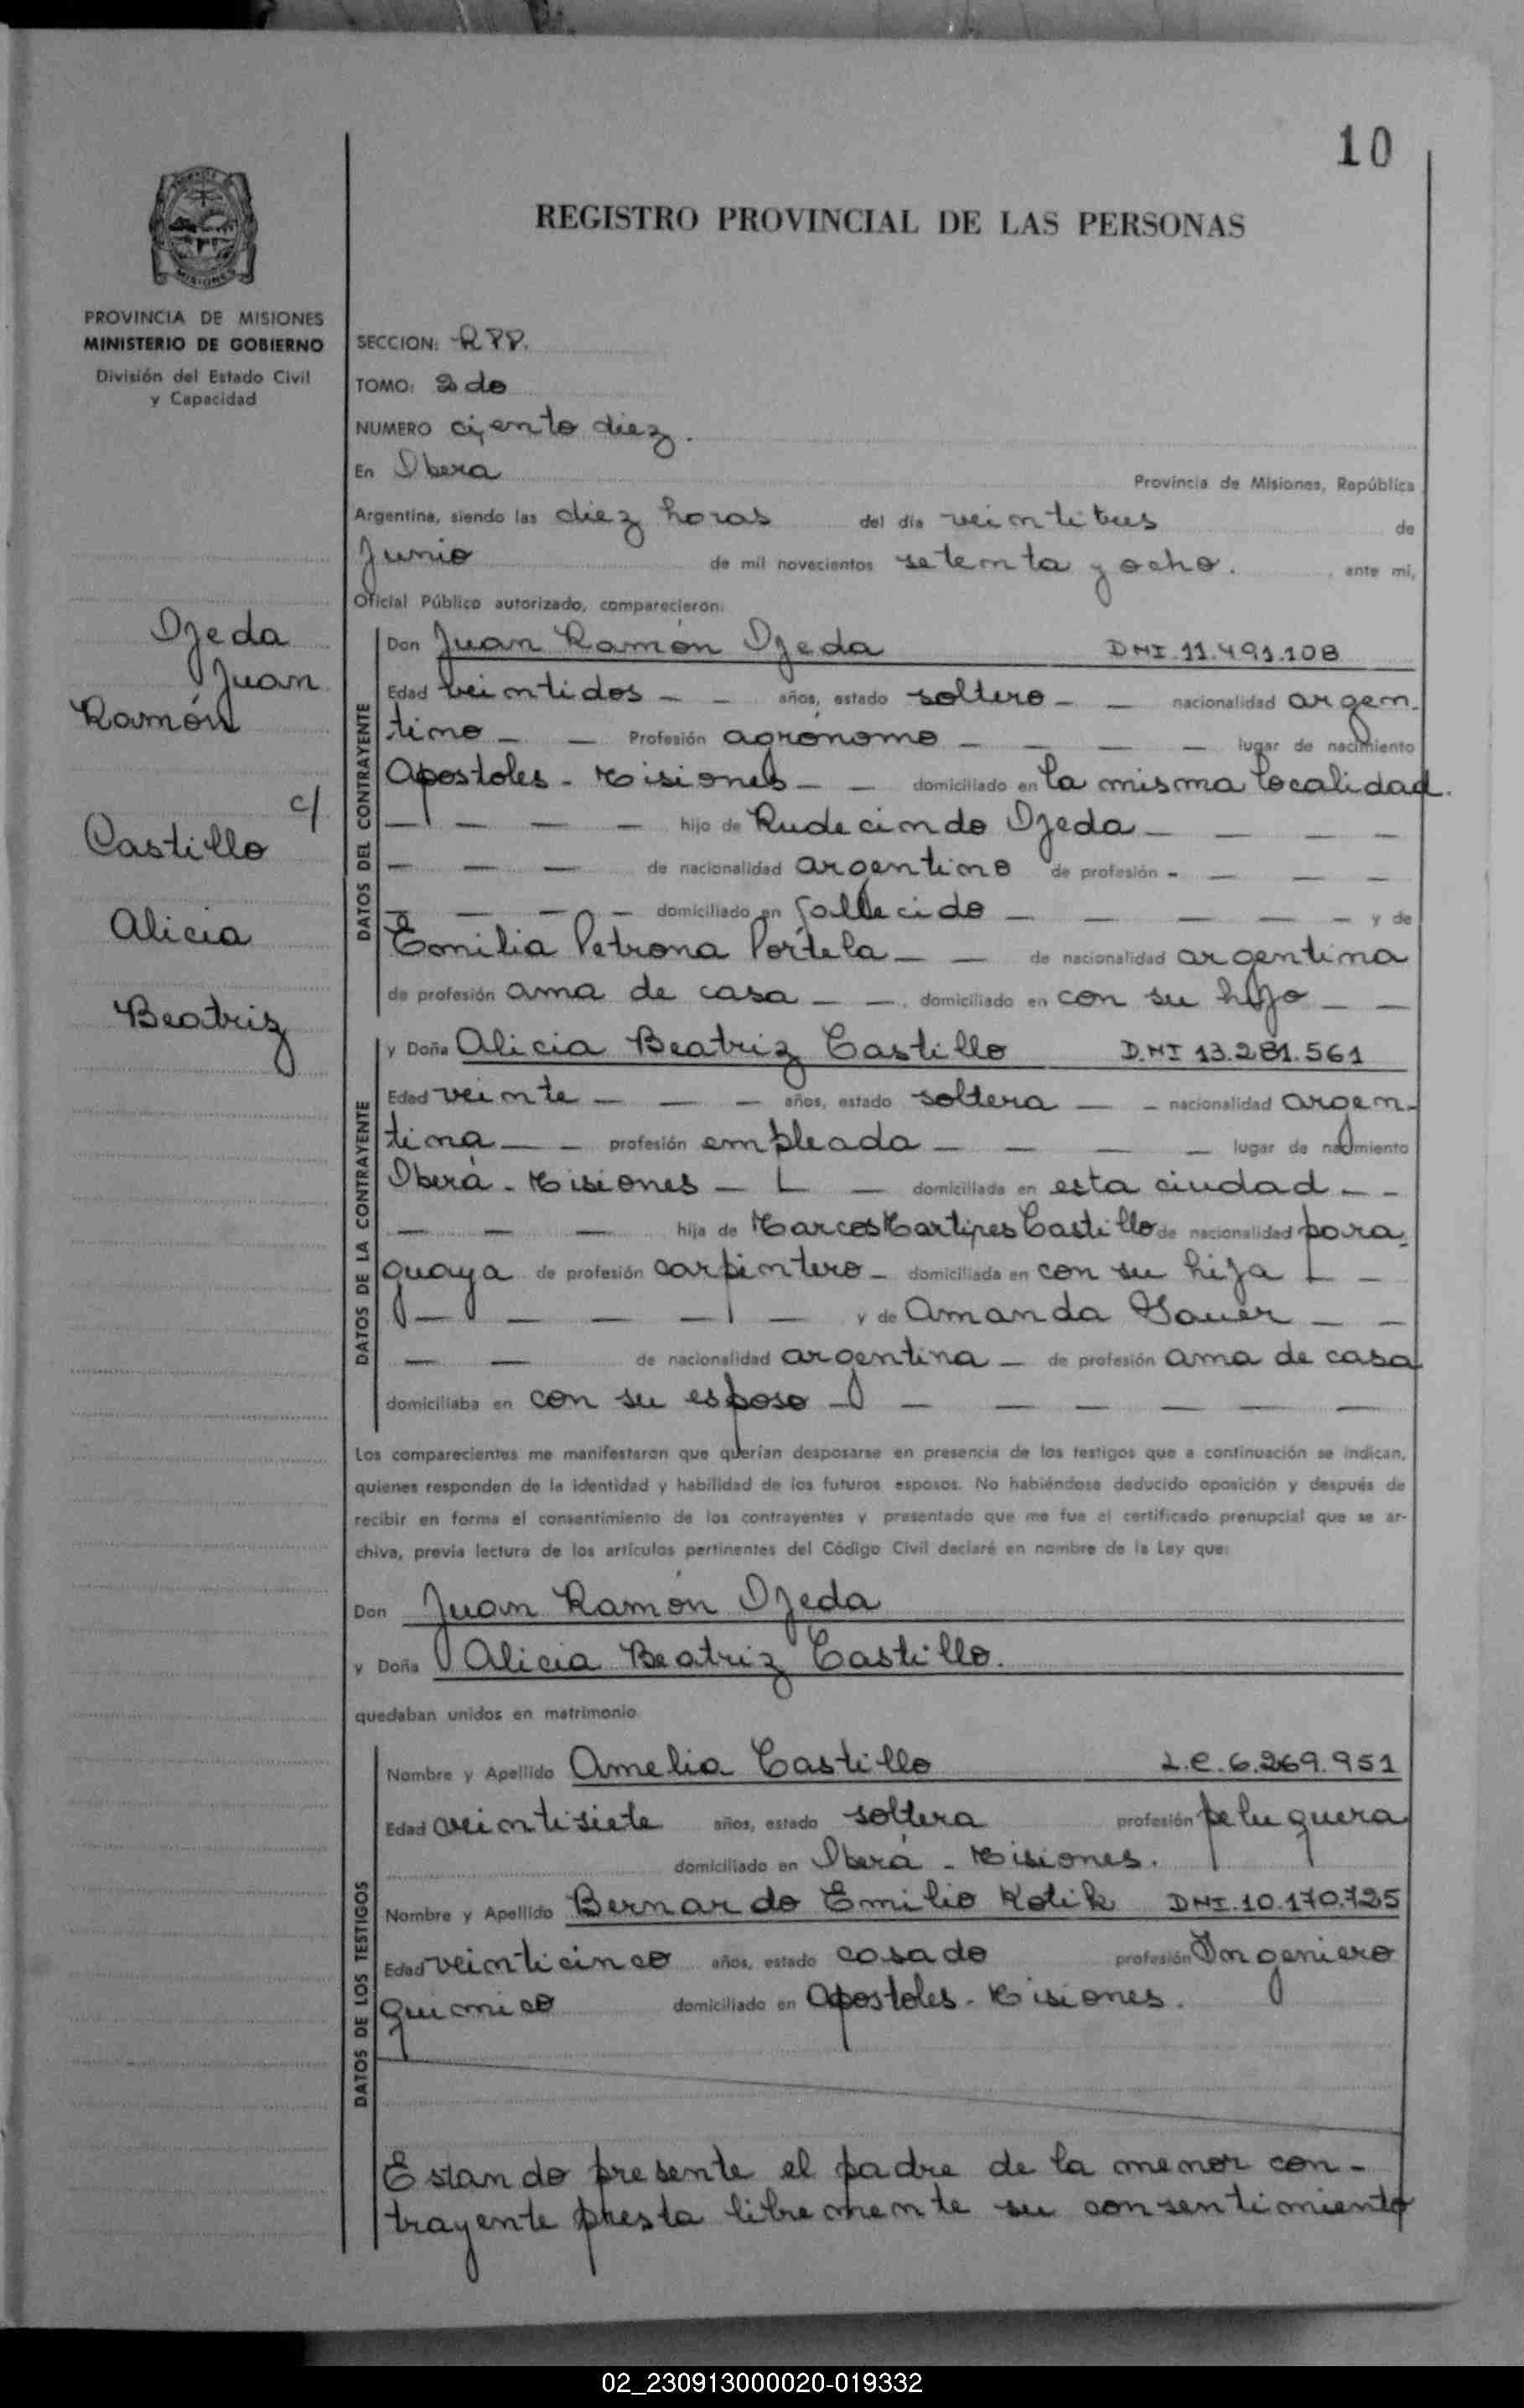 10
REGISTRO PROVINCIAL DE LAS PERSONAS
MISIONES
PROVINCIA DE MISIONES
MINISTERIO DE GOBIERNO
División del Estado Civil
y Capacidad
Ojeda
Juan
Ramón
c/
Castillo
Alicia
Beatriz
SECCION: RPP.
TOMO: 2do
NUMERO ciento diez.
En Obera Provincia de Misiones, República
Argentina, siendo las diez horas del día veintitres de
Junio de mil novecientos setenta y ocho. , ante mi,
Oficial Público autorizado, comparecieron:
DATOS DEL CONTRAYENTE
Don Juan Ramón Ojeda DNI.11.491.108
Edad veintidos — — años, estado soltero — — nacionalidad argen-
tino — — Profesión agrónomo — — — — lugar de nacimiento
Apostoles - Misiones — — domiciliado en la misma localidad.
— — — — hijo de Rudecindo Ojeda — — — —
— — — de nacionalidad argentino de profesión - — — —
— — — — domiciliado en fallecido — — — — — y de
Emilia Petrona Portela — — de nacionalidad argentina
de profesión ama de casa — —, domiciliado en con su hijo — —
DATOS DE LA CONTRAYENTE
y Doña Alicia Beatriz Castillo D.NI 13.281.561
Edad veinte — — — años, estado soltera — — nacionalidad argen-
tina — — profesión empleada — — — — lugar de nacimiento
Oberá - Misiones — — — domiciliada en esta ciudad - -
— — — hija de Marcos Martires Castillo de nacionalidad para-
guaya de profesión carpintero - domiciliada en con su hija — —
— — — — — y de Amanda Sauer — —
— — de nacionalidad argentina — de profesión ama de casa
domiciliaba en con su esposo — — — — — — —
Los comparecientes me manifestaron que querían desposarse en presencia de los testigos que a continuación se indican,
quienes responden de la identidad y habilidad de los futuros esposos. No habiéndose deducido oposición y después de
recibir en forma el consentimiento de los contrayentes y presentado que me fue el certificado prenupcial que se ar-
chiva, previa lectura de los artículos pertinentes del Código Civil declaré en nombre de la Ley que:
Don Juan Ramón Ojeda
y Doña Alicia Beatriz Castillo.
quedaban unidos en matrimonio
DATOS DE LOS TESTIGOS
Nombre y Apellido Amelia Castillo L.C.6.269.951
Edad veintisiete años, estado soltera profesión peluquera
domiciliado en Oberá - Misiones.
Nombre y Apellido Bernardo Emilio Kolik DNI.10.170.725
Edad veinticinco años, estado casado profesión Ingeniero
quimico domiciliado en Apostoles - Misiones.
Estando presente el padre de la menor con-
trayente presta libremente su consentimiento
02_230913000020-019332